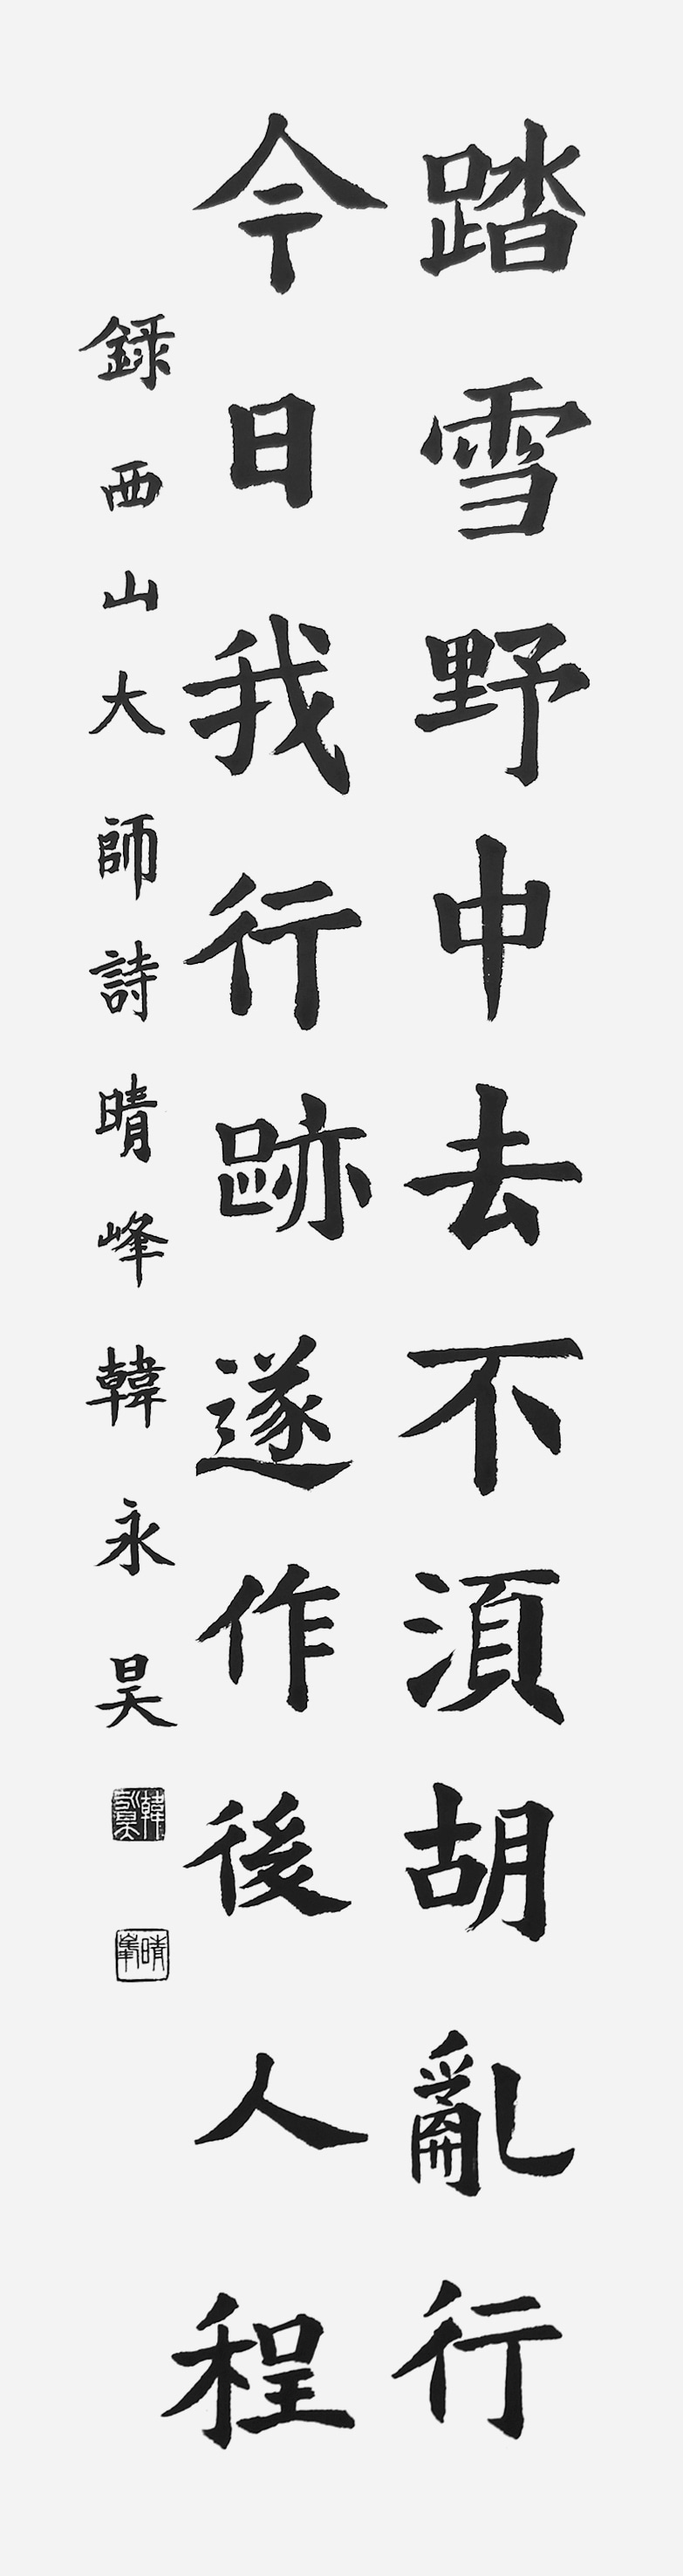 踏雪野中去不湏胡亂行
今日我行跡遂作後人程
録西山大師詩晴峰韓永昊
韓永昊
晴峯